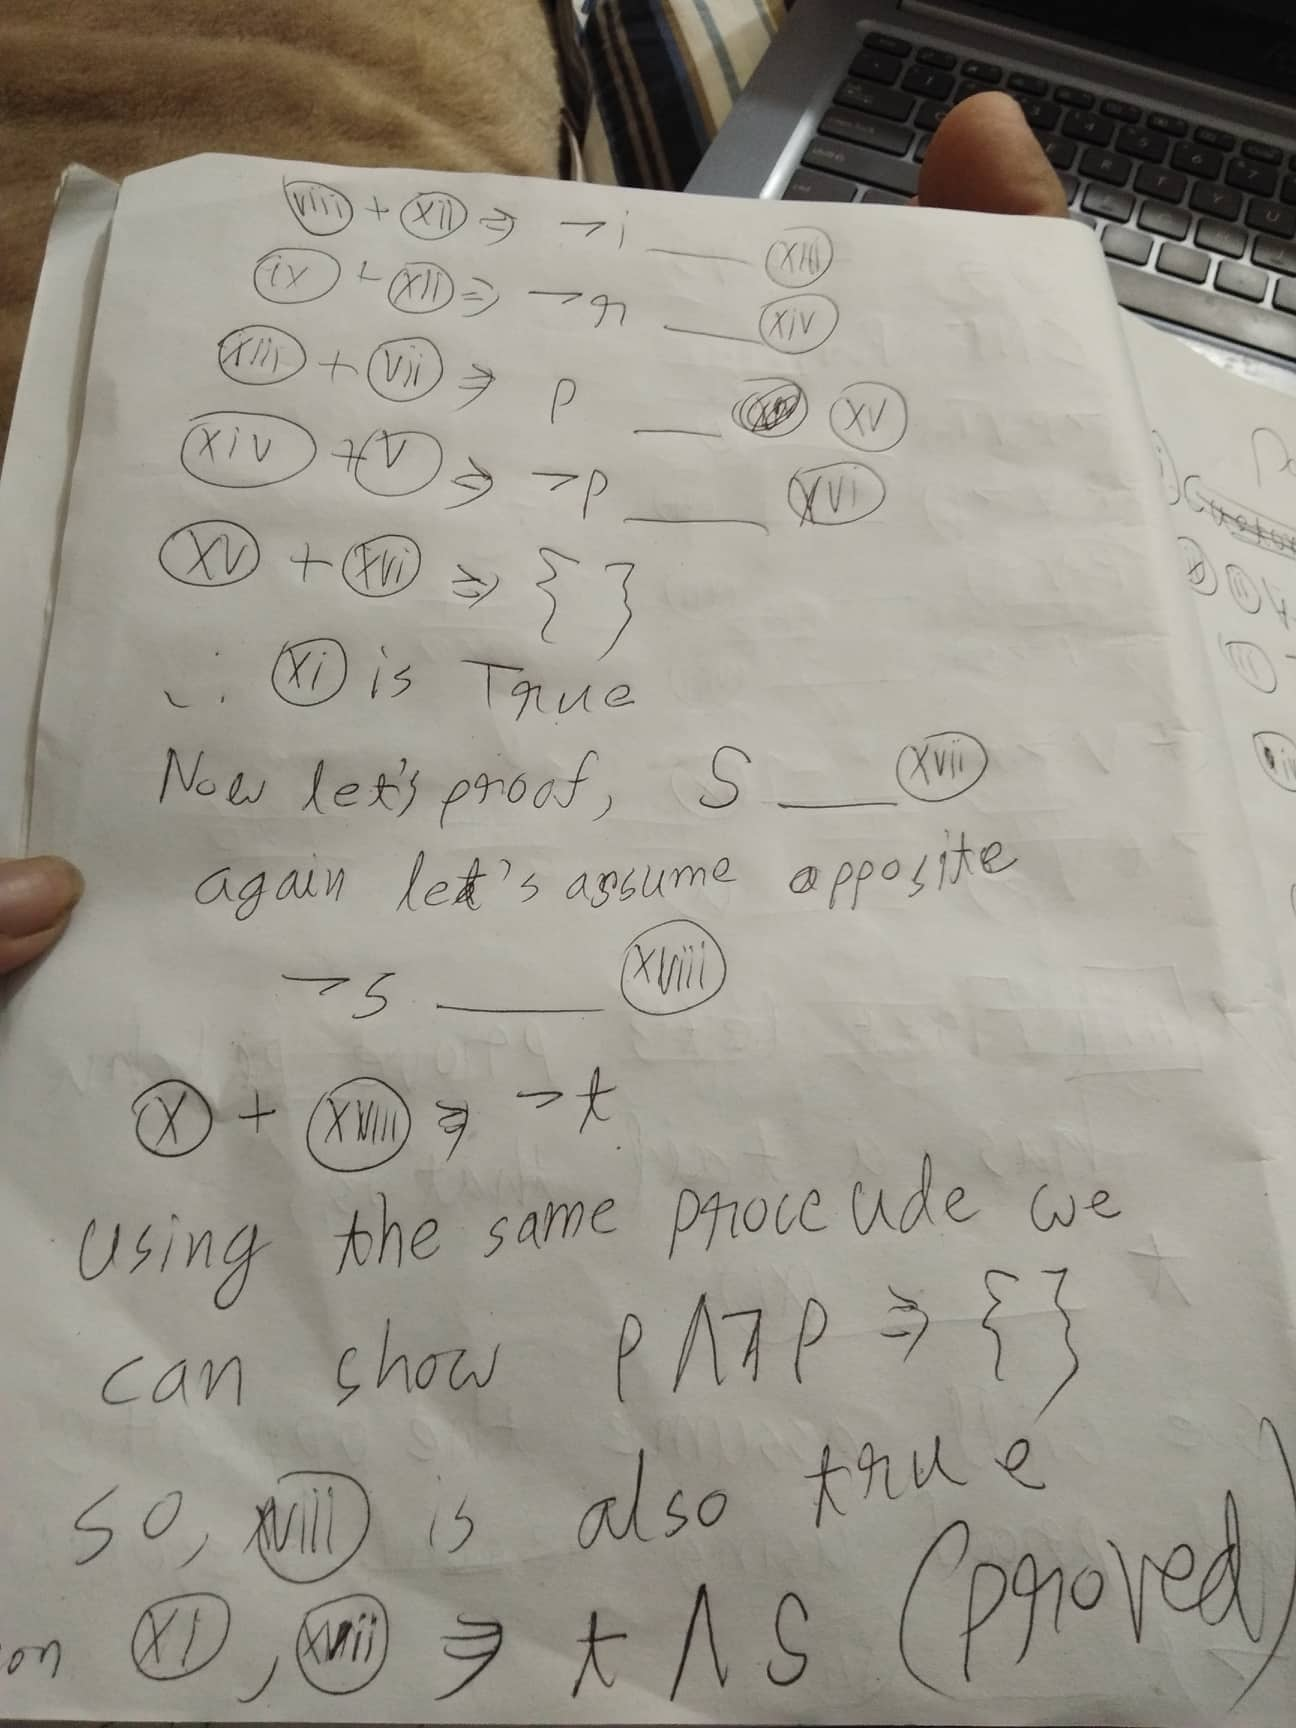 viii + xii ⇒ ¬i — xiii
ix + xii ⇒ ¬r — xiv
xiii + vii ⇒ p — xv
xiv + v ⇒ ¬p — xvi
xv + xvi ⇒ { }
∴ xi is True
Now let's proof, S — xvii
again let's assume opposite
¬s — xviii
x + xviii ⇒ ¬t
using the same procedude we
can show p ∧ ¬p ⇒ { }
so, xviii is also true
on xi, xvii ⇒ t ∧ s (proved)